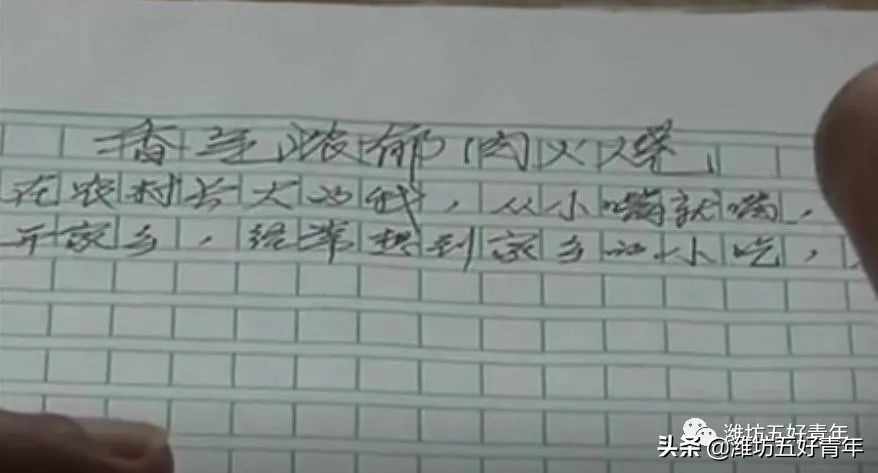 香气浓郁肉火烧
在农村长大的我,从小嘴就馋,
开家乡,经常想到家乡的小吃,
潍坊五好青年
头条@潍坊五好青年